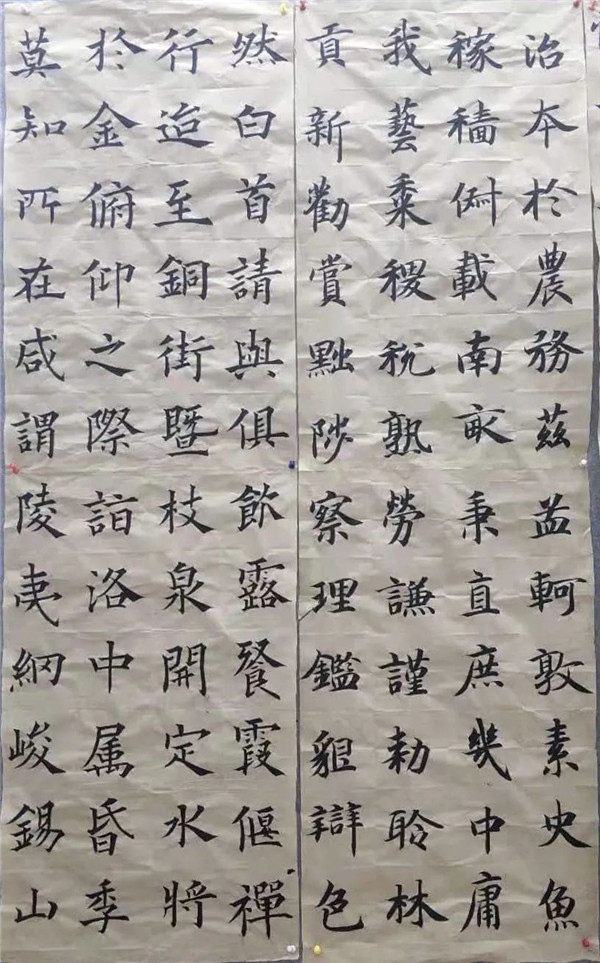 治本於農務茲孟軻敦素史魚
稼穡俶載南畝秉直庶幾中庸
我藝黍稷稅熟勞謙謹勅聆林
貢新勸賞黜陟察理鑑貌辯色
然白首請與俱飲露餐霞偃禪
行迨至銅街暨枝泉開定水將
於金俯仰之際詣洛中属昏季
莫知所在咸謂陵夷網峻錫山